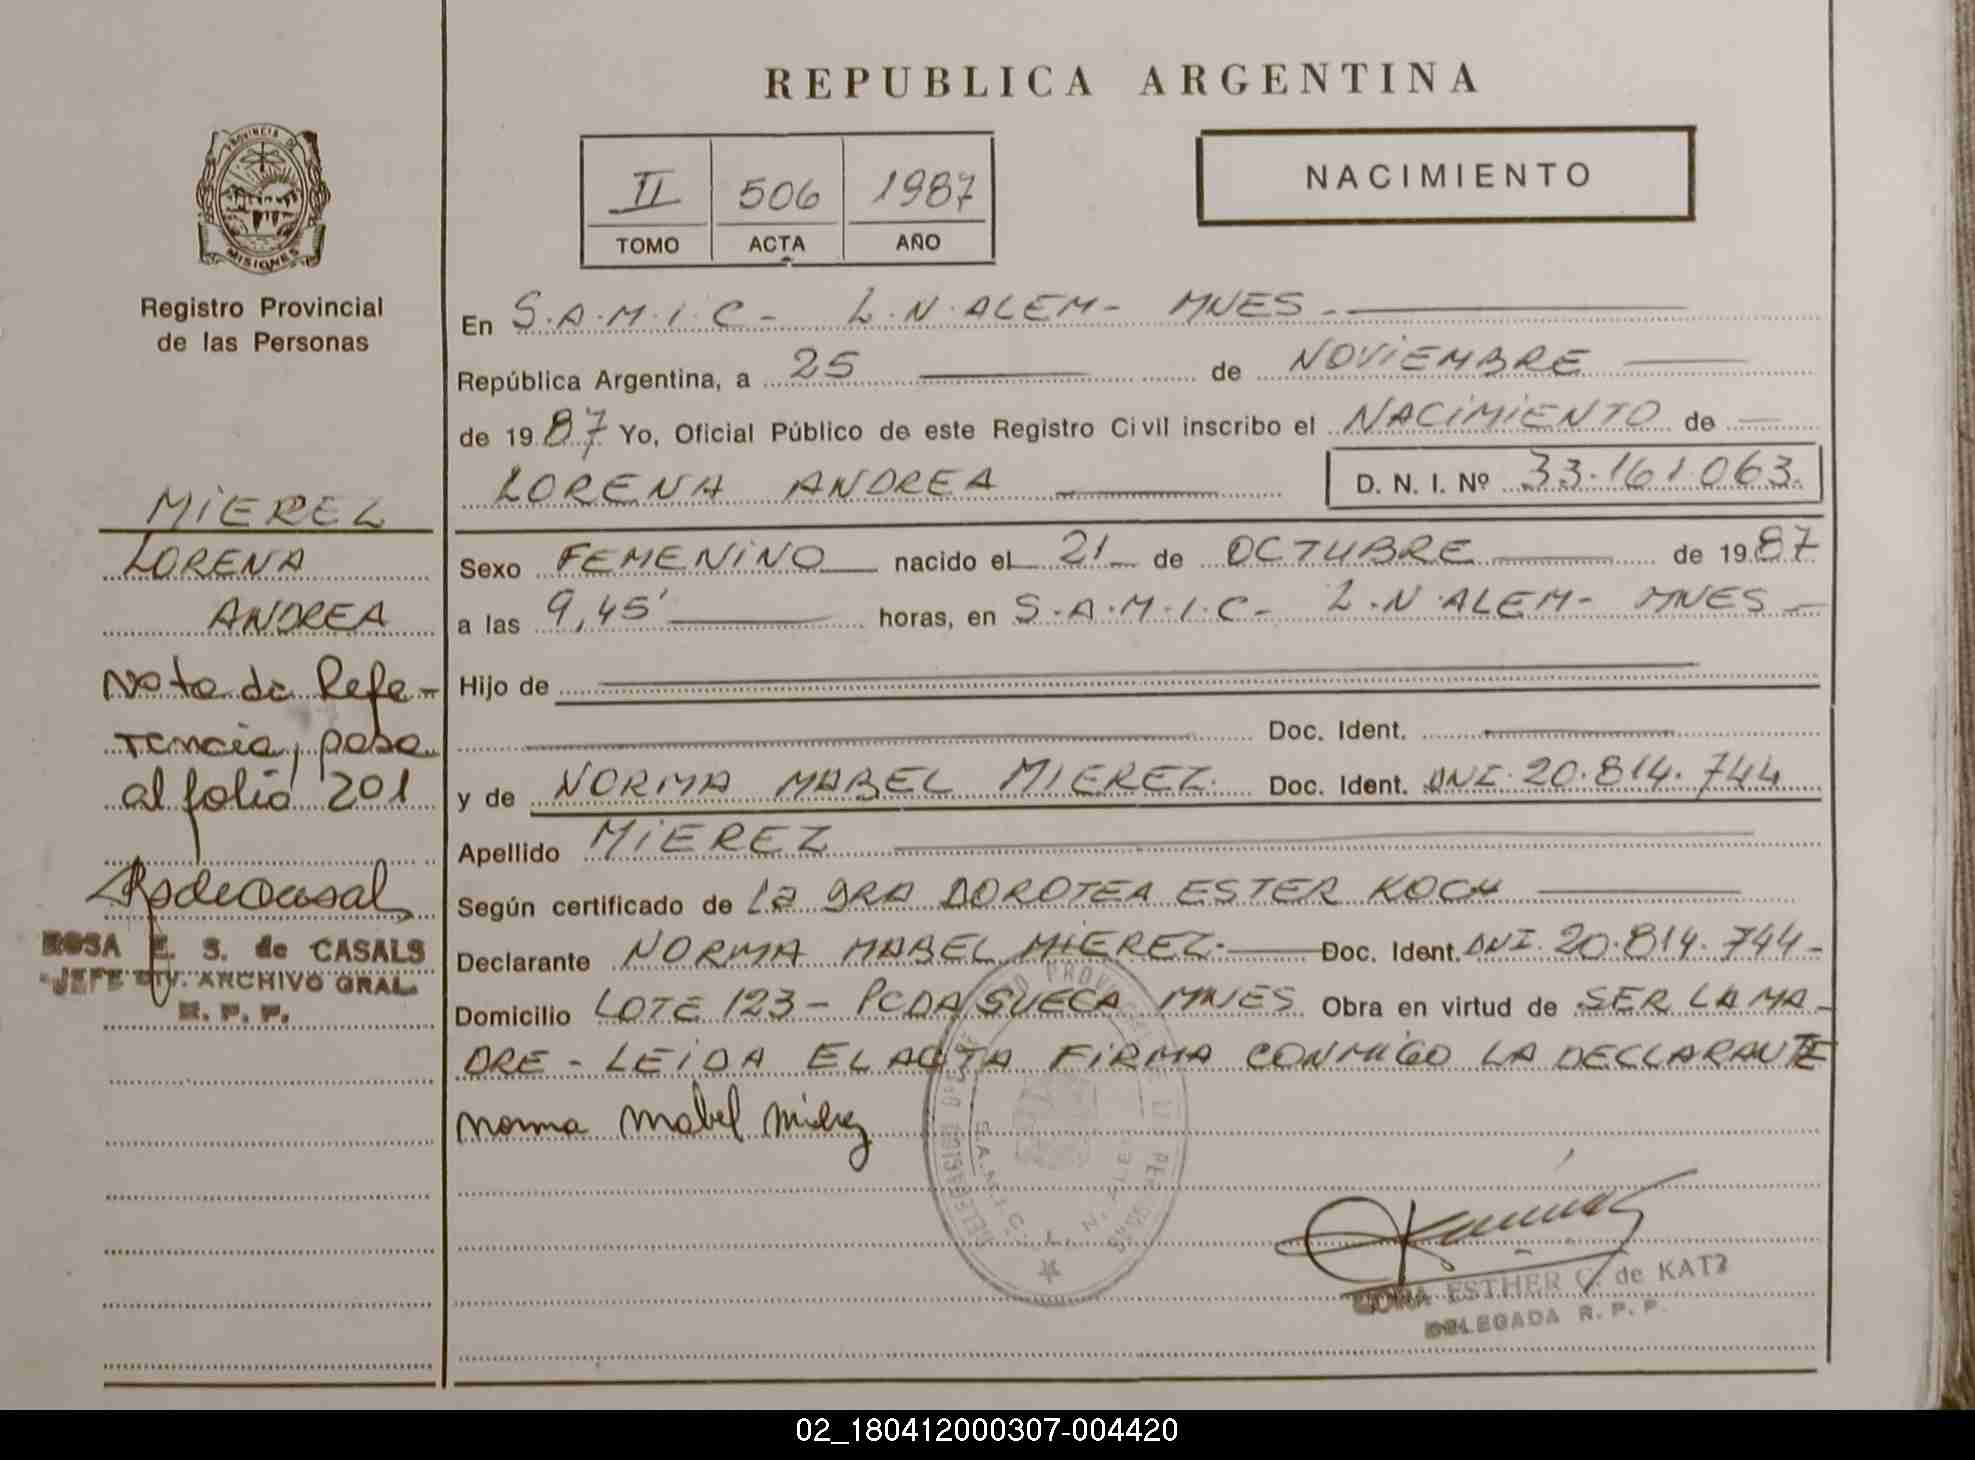 REPUBLICA ARGENTINA
PROVINCIA DE
MISIONES
Registro Provincial
de las Personas
II 506 1987
TOMO ACTA AÑO
NACIMIENTO
En S.A.M.I.C- L.N.ALEM- MNES-
República Argentina, a 25 de NOVIEMBRE
de 1987 Yo, Oficial Público de este Registro Civil inscribo el NACIMIENTO de
LORENA ANDREA D. N. I. Nº 33.161.063.
Sexo FEMENINO nacido el 21 de OCTUBRE de 1987
a las 9,45' horas, en S.A.M.I.C- L.N.ALEM- MNES-
Hijo de
Doc. Ident.
y de NORMA MABEL MIEREZ. Doc. Ident. DNI.20.814.744
Apellido MIEREZ
Según certificado de La DRA DOROTEA ESTER KOCH
Declarante NORMA MABEL MIEREZ. Doc. Ident. DNI.20.814.744-
Domicilio LOTE 123- PCDA SUECA MNES Obra en virtud de SER LA MA-
DRE - LEIDA EL ACTA FIRMA CONMIGO LA DECLARANTE
Norma Mabel Mierez
MIEREZ
LORENA
ANDREA
Nota de Refe-
rencia, pasa
al folio 201
ROSA E. S. de CASALS
JEFE DIV. ARCHIVO GRAL.
R. P. P.
S.A.M.I.C. L. N. ALE
ESTHER C. de KATZ
DELEGADA R. P. P.
02_180412000307-004420